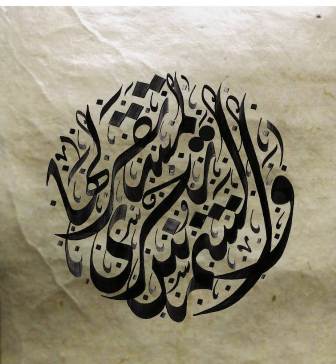 والشمس تجري لمستقر لها